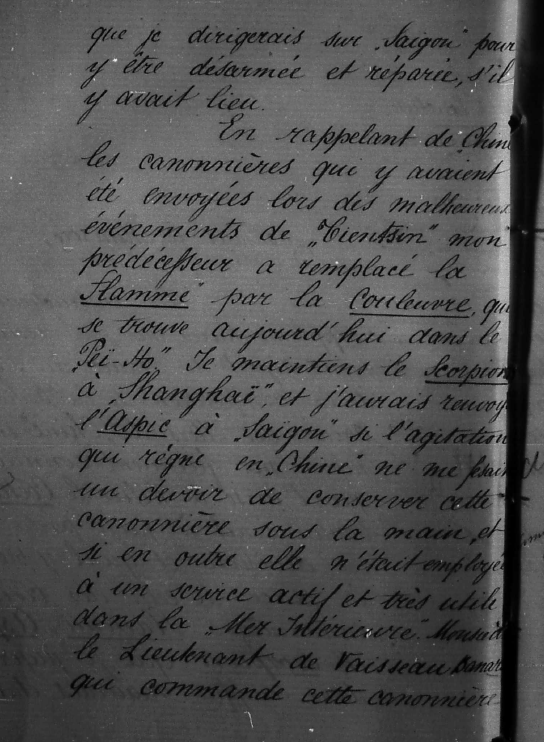 que je dirigerais sur „Saigon" pour
y être désarmée et réparée, s'il
y avait lieu.
En rappelant de „Chine
les canonnières qui y avaient
été envoyées lors des malheureux
événements de „Tientsin" mon
prédécesseur a remplacé la
Flamme" par la Couleuvre, qui
se trouve aujourd'hui dans le
Peï-Ho." Je maintiens le Scorpion
à „Shanghaï", et j'aurais renvoyé
l'Aspic à „Saigon" si l'agitation
qui règne en „Chine" ne me fesait
un devoir de conserver cette
canonnière sous la main, et
si en outre elle n'était employée
à un service actif et très utile
dans la „Mer Intérieure". Monsieur
le Lieutenant de Vaisseau
qui commande cette canonnière